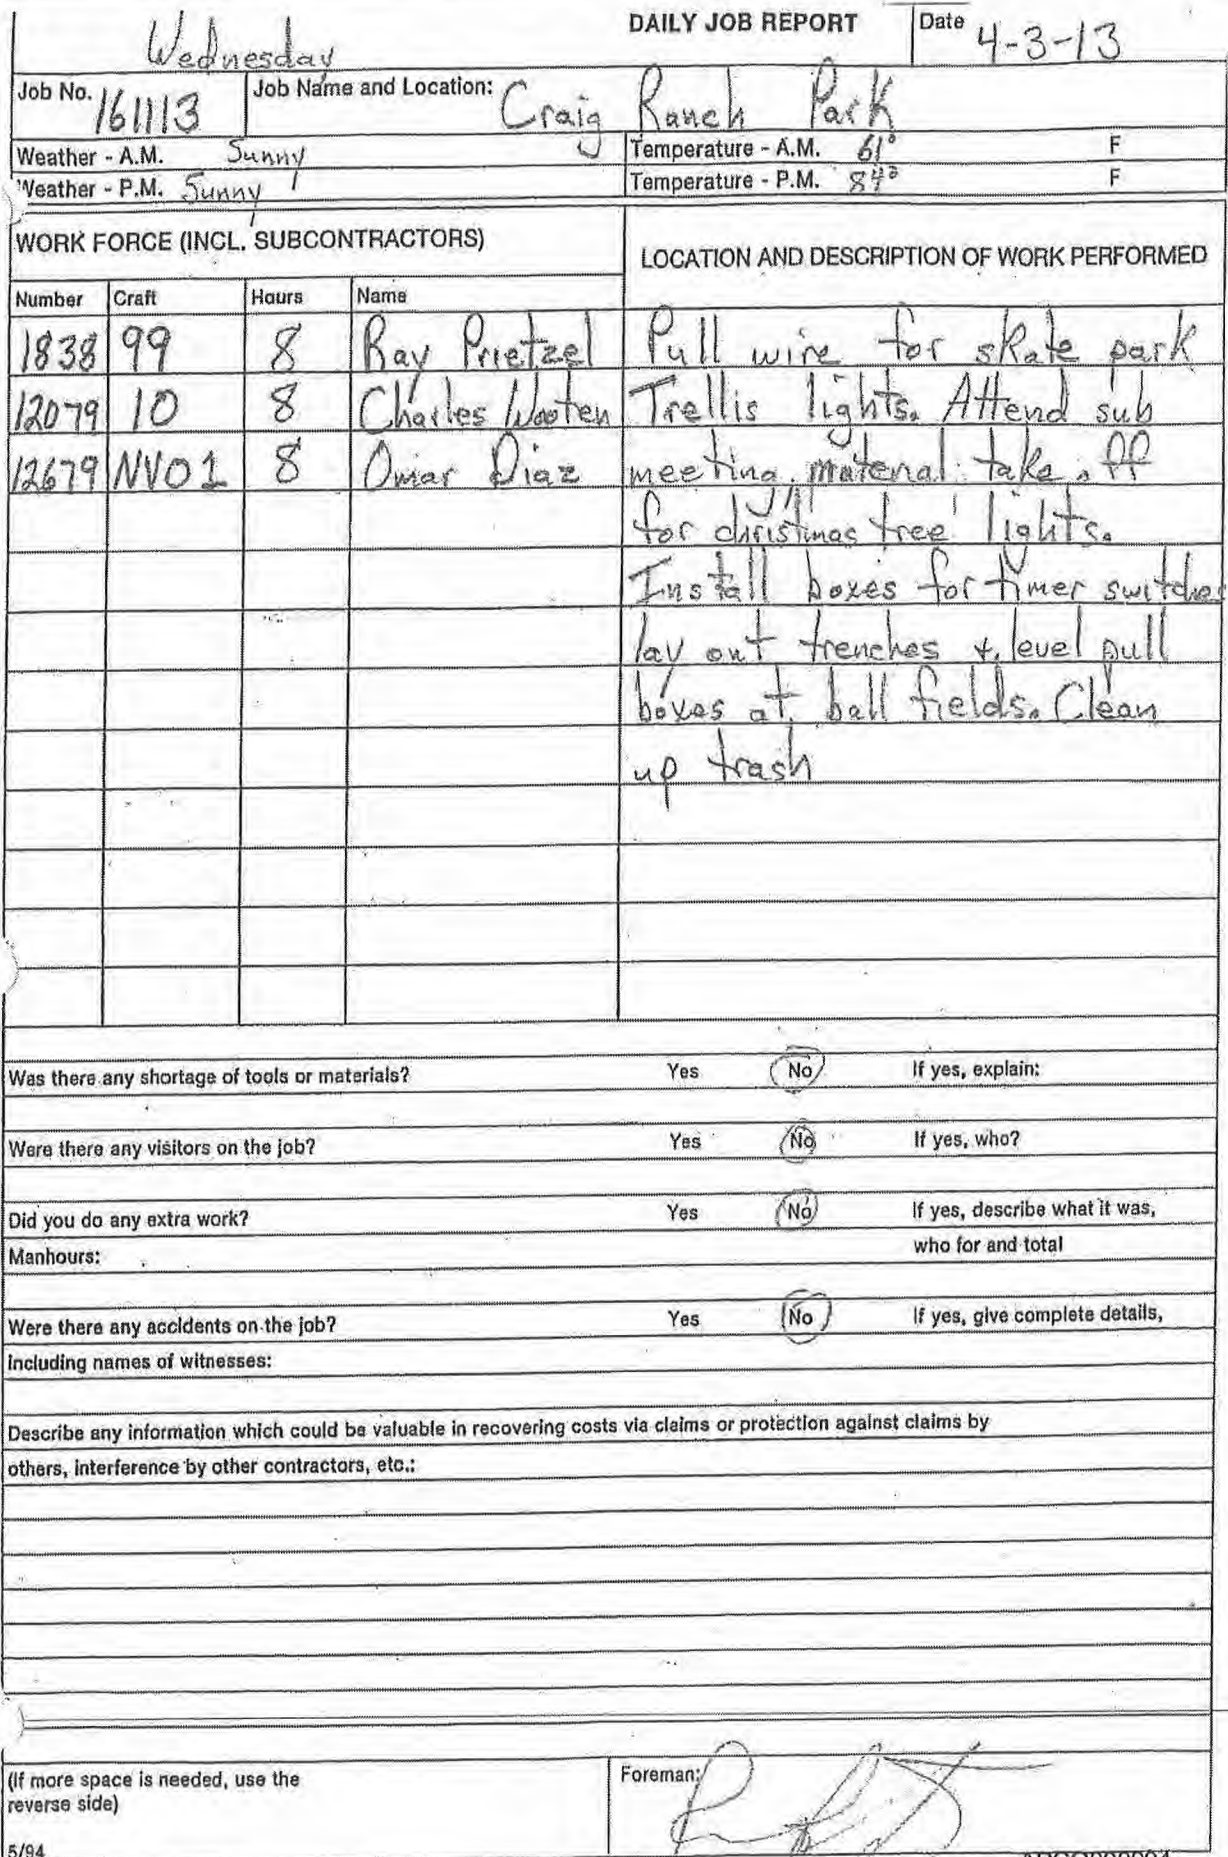 DAILY JOB REPORT
Date 4-3-13
Wednesday
Job No. 161113
Job Name and Location: Craig Ranch Park
Weather - A.M. Sunny
Temperature - A.M. 61° F
Weather - P.M. Sunny
Temperature - P.M. 84° F
WORK FORCE (INCL. SUBCONTRACTORS)
LOCATION AND DESCRIPTION OF WORK PERFORMED
Number Craft Hours Name
1838 99 8 Ray Prietzel Pull wire for skate park
12079 10 8 Charles Wooten Trellis lights. Attend sub
12679 NV01 8 Omar Diaz meeting. material take off
for christmas tree lights.
Install boxes for timer switches
lay out trenches & level pull
boxes at ball fields. Clean
up trash
Was there any shortage of tools or materials? Yes No If yes, explain:
Were there any visitors on the job? Yes No If yes, who?
Did you do any extra work? Yes No If yes, describe what it was,
who for and total
Manhours:
Were there any accidents on the job? Yes No If yes, give complete details,
including names of witnesses:
Describe any information which could be valuable in recovering costs via claims or protection against claims by
others, interference by other contractors, etc.:
(If more space is needed, use the
reverse side)
Foreman:
5/94